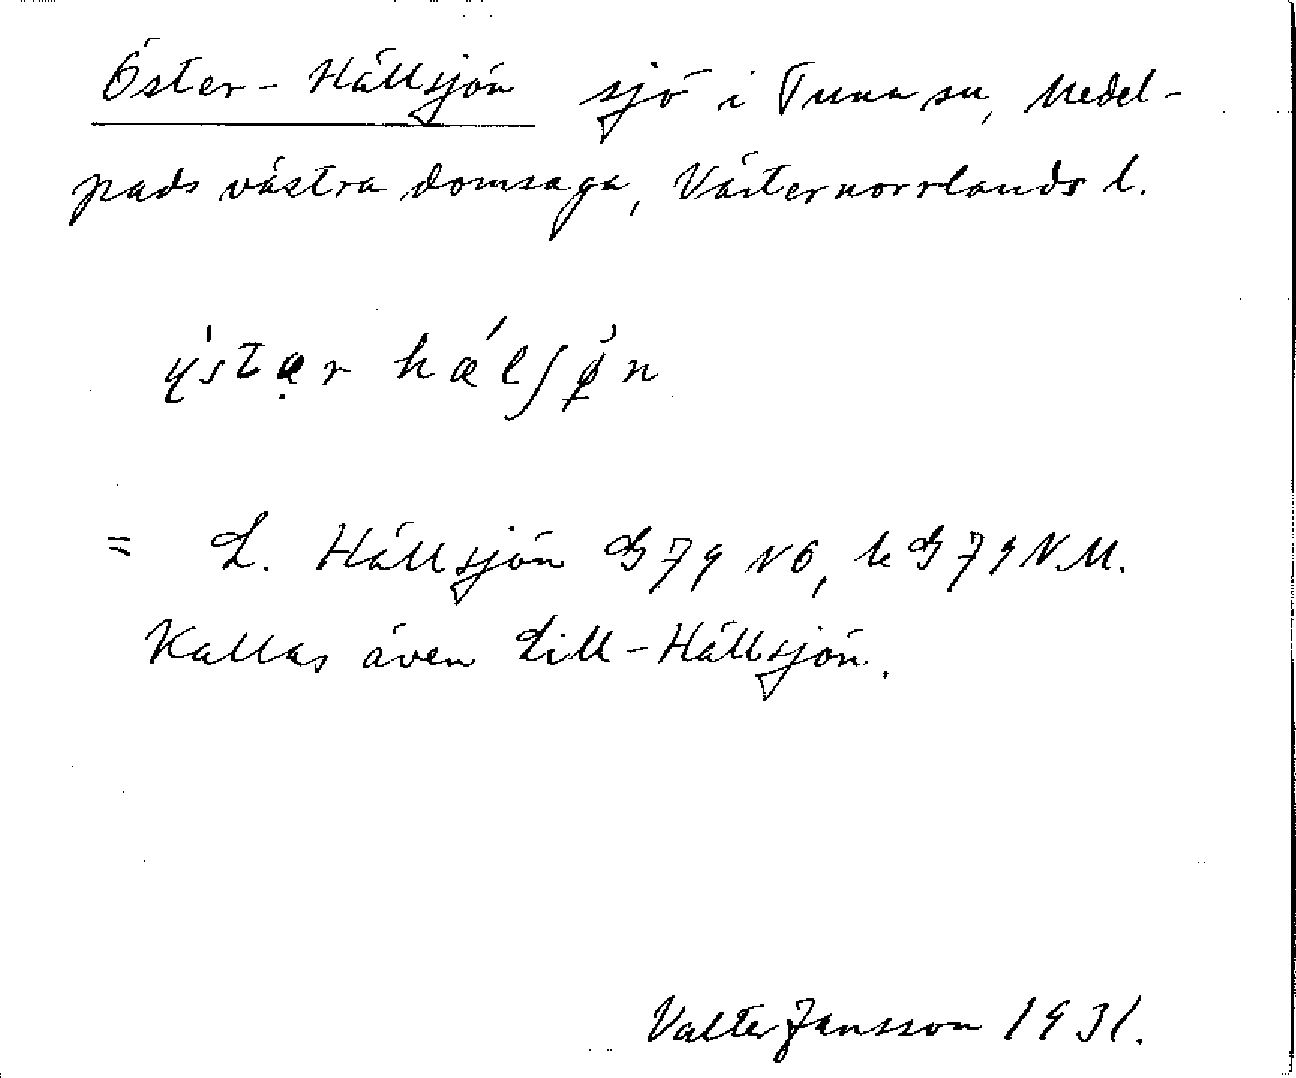 Öster-Hällsjön sjö i Tuna sn, Medel-
pads västra domsaga, Västernorrlands l.
ýstər hǽlʃø̀n
= L. Hällsjön G 79 NÖ, k G 79 N.M.
Kallas även Lill-Hällsjön.
Valter Jansson 1931.